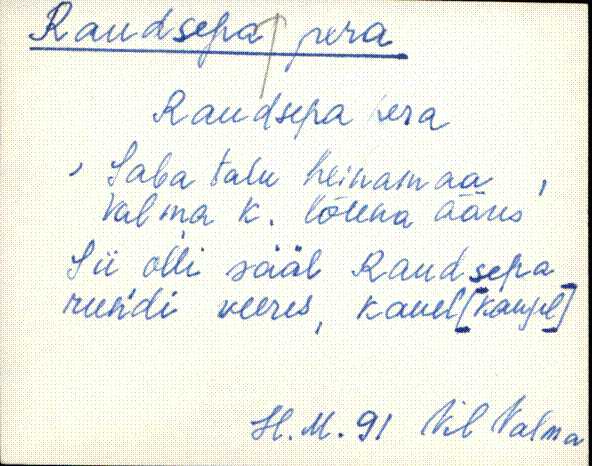 Raudsepa pera
Raudsepa pera
, Saba talu heinamaa,
Valma k. lõuna ääres
Sii olli sääl Raudsepa
rundi veeres, kauel [kaugel]
H.M. 91 Vil Valma